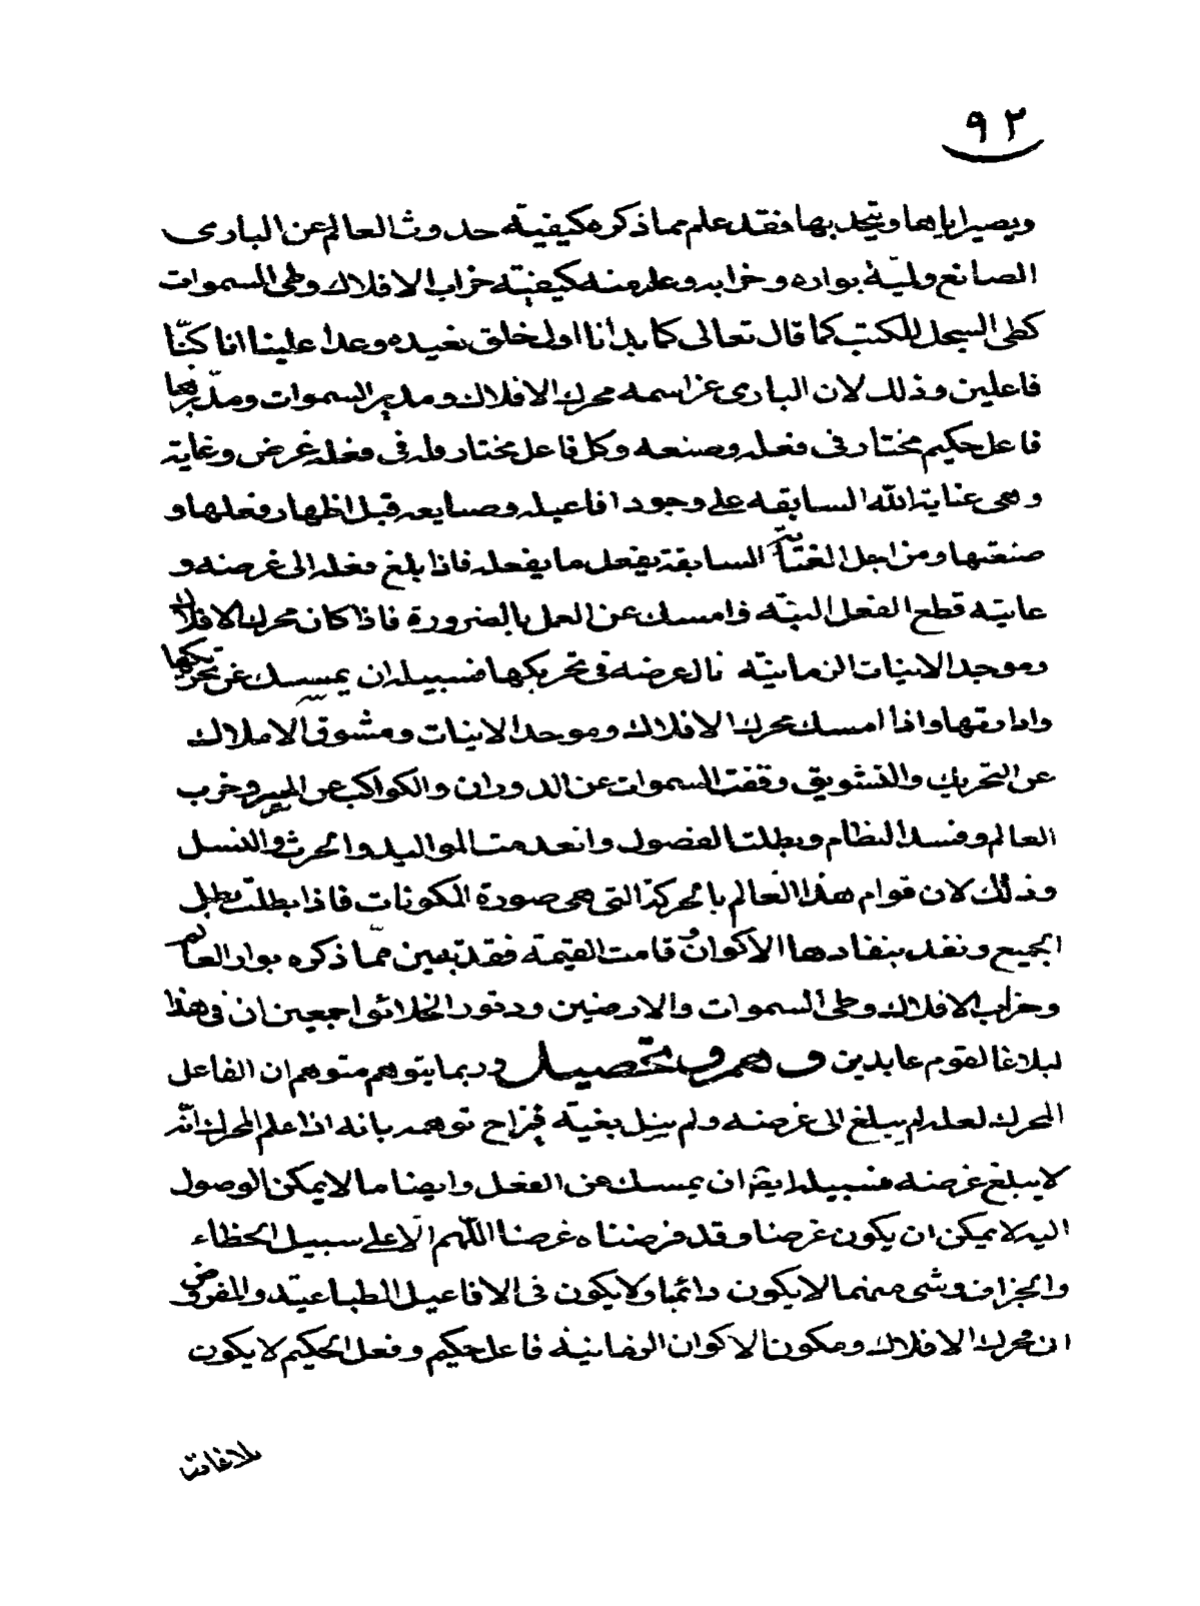 ٩٢
ويصير اياها ويتحد بها فقد علم مما ذكره كيفية حدوث العالم عن البارى
الصانع ولمية بواره وخرابه وعلم منه كيفية خراب الافلاك وطى السموات
كطى السجل للكتب كما قال تعالى كما بدأنا اول خلق نعيده وعدا علينا انا كنّا
فاعلين وذلك لان البارى عز اسمه محرك الافلاك ومدير السموات ومدبرها
فاعل حكيم مختار فى فعله وصنعه وكل فاعل مختار وله فى فعله غرض وغاية
وهى عناية الله السابقه على وجود افاعيله وصنايعه قبل اظهار فعلها و
صنعتها ومن اجل السابقة يفعل ما يفعله فاذا بلغ فعله الى غرضه و
غايته قطع الفعل البتّه وامسك عن العمل بالضرورة فاذا كان محرك الافلاك
وموجد الانيات الزمانيّة نال غرضه فى تحريكها فسبيله ان يمسك عن تحريكها
وادارتها واذا امسك محرك الافلاك وموجد الانيات ومشوق الاملاك
عن التحريك والتشويق وقفت السموات عن الدوران والكواكب عن المسير وخرب
العالم وفسد النظام وبطلت الفصول وانعدمت المواليد والحرث والنسل
وذلك لان قوام هذا العالم بالحركة التى هى صورة المكونات فاذا بطلت بطل
الجميع ونفد بنفادها الاكوان وقامت القيمة فقد تبين ممّا ذكره بوار العالم
وخراب الافلاك وطى السموات والارضين ودثور الخلائق اجمعين ان فى هذا
لبلاغا لقوم عابدين وهم وتحصيل وربما يتوهم متوهم ان الفاعل
المحرك لعله لم يبلغ الى غرضه ولم ينل بغيته فيزاح توهمه بانه اذا علم المحرك انّه
لا يبلغ غرضه فسبيله ايضا ان يمسك عن الفعل وايضا ما لا يمكن الوصول
اليه لا يمكن ان يكون غرضا وقد فرضناه غرضا اللّهم الّا على سبيل الخطاء
والجزاف وشى منهما لا يكون دائما ولا يكون فى الافاعيل الطباعية والمفروض
ان محرك الافلاك ومكون الاكوان الزمانية فاعل حكيم وفعل الحكيم لا يكون
بلا غاية